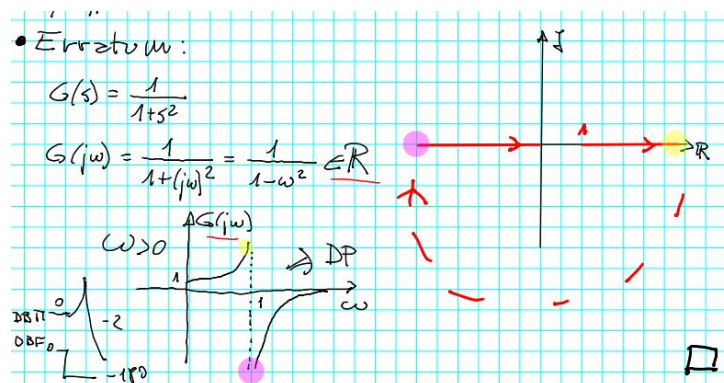 • Erratum:
G(s) = 1/(1+s²)
G(jω) = 1/(1+(jω)²) = 1/(1-ω²) ∈ ℝ
ω>0
G(jω)
1
1
ω
⇒ DP
0
-2
0
-180
J
1
ℝ